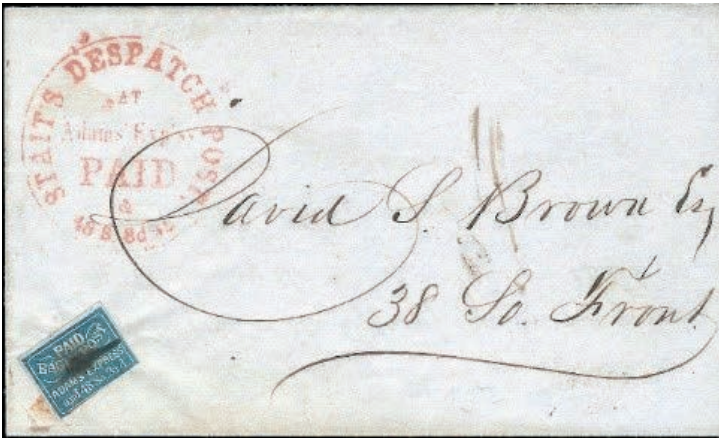 STAIT'S DESPATCH POST
AT
Adams' Express
PAID
&
48 S. 3d St
David S Brown Esq
38 So. Front
PAID
EAGLE POST
ADAMS' EXPRESS